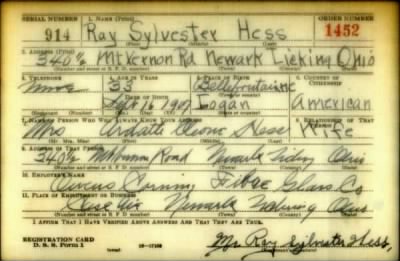 SERIAL NUMBER 1. NAME (Print) ORDER NUMBER
914 Ray Sylvester Hess 1452
2. ADDRESS (Print)
340½ Mt Vernon Rd Newark Licking Ohio
3. TELEPHONE 4. AGE IN YEARS 5. PLACE OF BIRTH 6. COUNTRY OF CITIZENSHIP
none 33 Bellefontaine
DATE OF BIRTH
Sept 16 1907 Logan American
7. NAME OF PERSON WHO WILL ALWAYS KNOW YOUR ADDRESS 8. RELATIONSHIP OF THAT PERSON
Mrs Hess Wife
9. ADDRESS OF THAT PERSON
340½ Mt Vernon Road Newark Licking Ohio
10. EMPLOYER'S NAME
Owens Corning Fibre Glass Co
11. PLACE OF EMPLOYMENT OR BUSINESS
Newark Licking Ohio
I AFFIRM THAT I HAVE VERIFIED ABOVE ANSWERS AND THAT THEY ARE TRUE.
REGISTRATION CARD
D. S. S. Form 1 Mr Ray Sylvester Hess